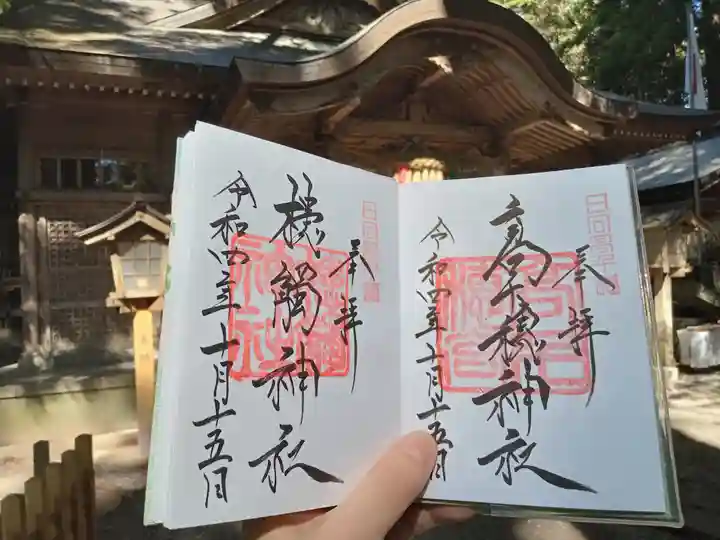 奉拝
高千穂神社
令和四年十月十五日
奉拝
槵觸神社
令和四年十月十五日